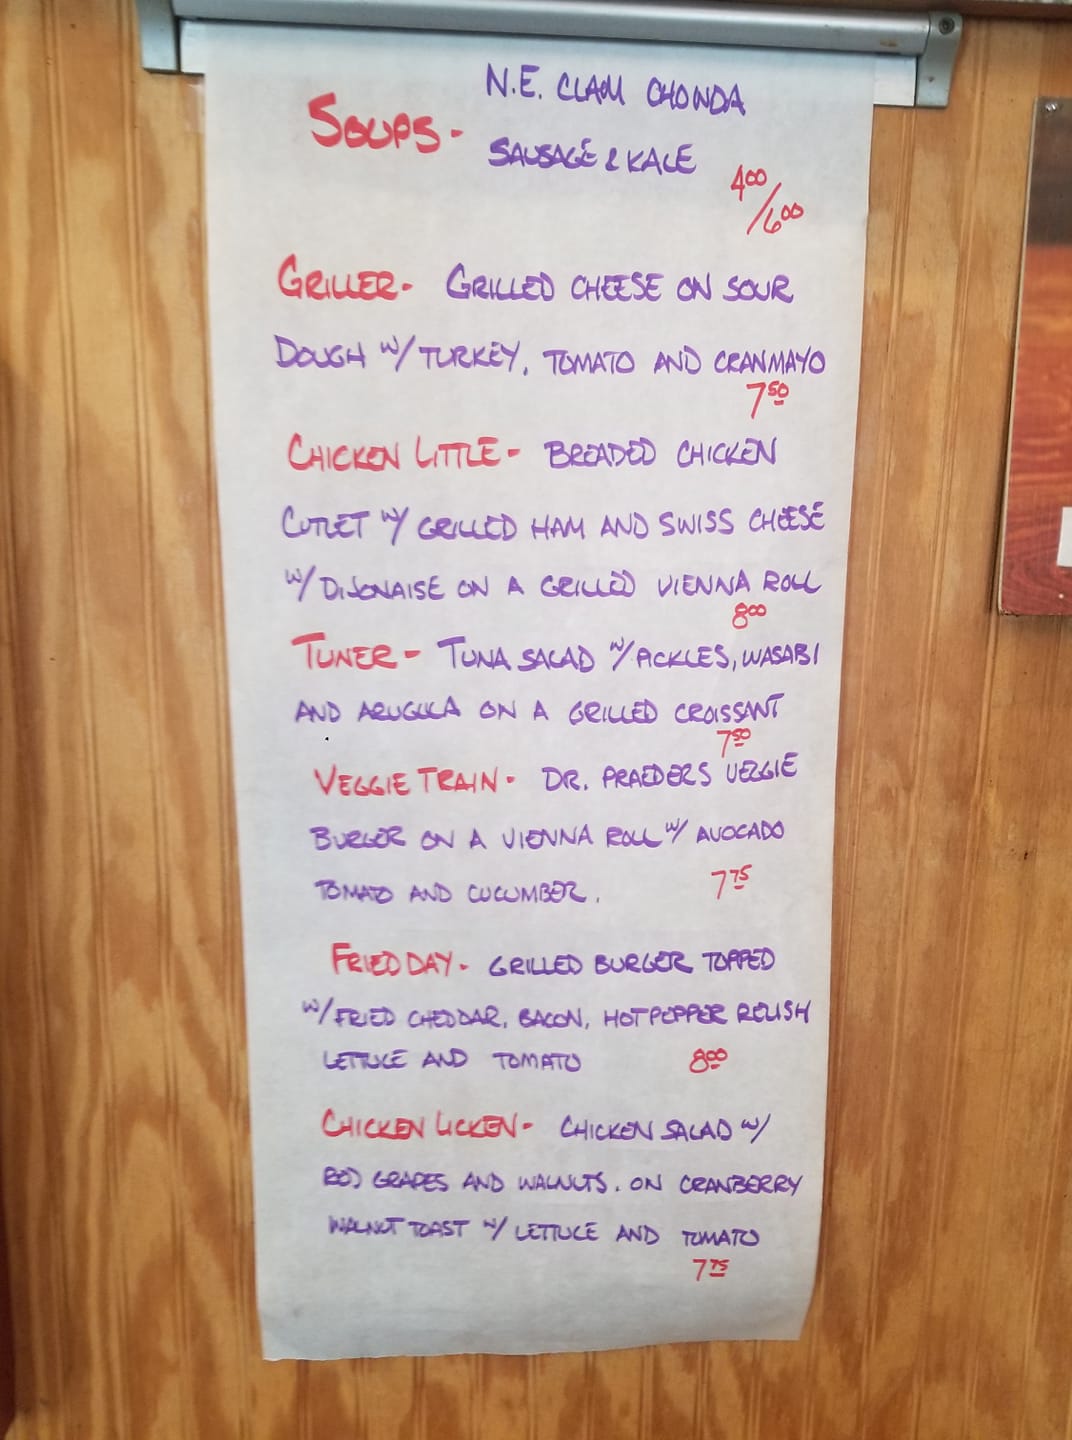 N.E. CLAM CHOWDA
SOUPS-
SAUSAGE & KALE
400/6.00
GRILLER- GRILLED CHEESE ON SOUR
DOUGH W/ TURKEY, TOMATO AND CRANMAYO
7 50
CHICKEN LITTLE- BREADED CHICKEN
CUTLET W/ GRILLED HAM AND SWISS CHEESE
W/ DIJONAISE ON A GRILLED VIENNA ROLL
8 00
TUNER- TUNA SALAD W/ PICKLES, WASABI
AND ARUGULA ON A GRILLED CROISSANT
7 50
VEGGIE TRAIN- DR. PRAEDERS VEGGIE
BURGER ON A VIENNA ROLL W/ AVOCADO
TOMATO AND CUCUMBER. 7 75
FRIED DAY- GRILLED BURGER TOPPED
W/ FRIED CHEDDAR, BACON, HOT PEPPER RELISH
LETTUCE AND TOMATO 8 00
CHICKEN LICKEN- CHICKEN SALAD W/
RED GRAPES AND WALNUTS. ON CRANBERRY
WALNUT TOAST W/ LETTUCE AND TOMATO
7 75